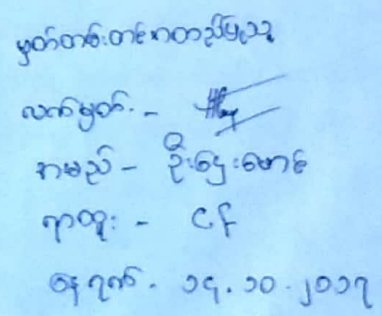 မှတ်တမ်းတင်တတည်ပြုသူ
လက်မှတ် -
အမည် - ဦးဌေးမောင်
ရာထူး - ငန
နေ့ရက် - ၁၄.၁၀.၂၀၁၇